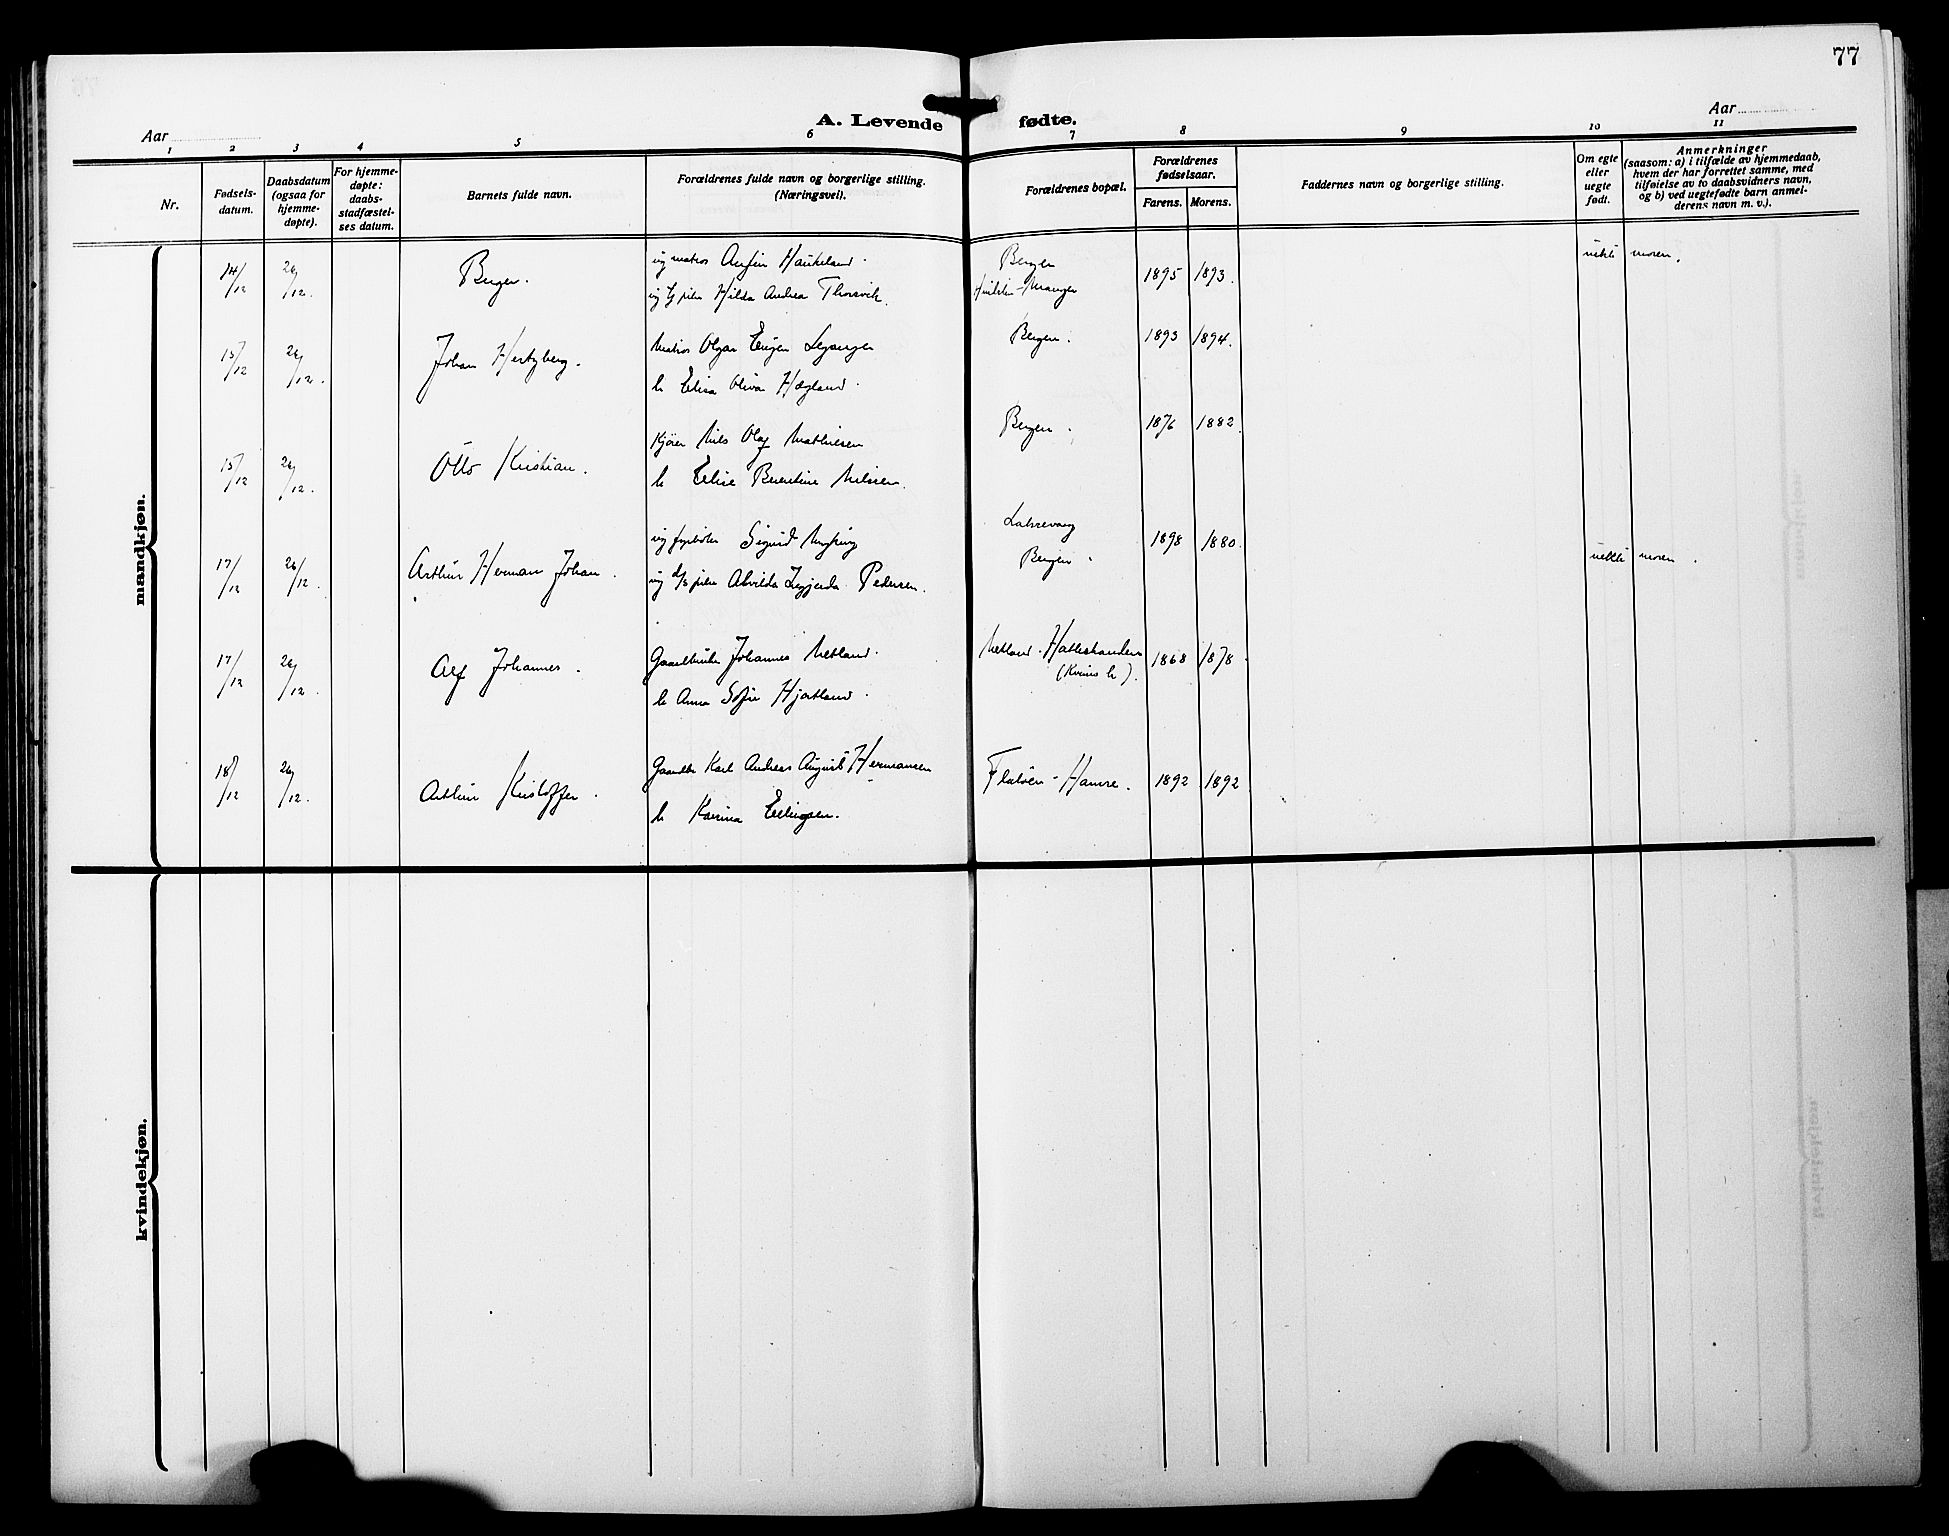 77
A. Levende fødte.
Aar
Aar
1 2 3 4 5 6 7 8 9 10 11
Nr.
Fødselsdatum.
Daabsdatum (ogsaa for hjemmedøpte).
For hjemmedøpte: daabsstadfæstelses datum.
Barnets fulde navn.
Forældrenes fulde navn og borgerlige stilling.
(Næringsvei).
Forældrenes bopæl.
Forældrenes fødselsaar.
Farens. Morens.
Faddernes navn og borgerlige stilling.
Om egte eller uegte født.
Anmerkninger
(saasom: a) i tilfælde av hjemmedaab,
hvem der har forrettet samme, med
tilføielse av to daabsvidners navn,
og b) ved uegtefødte barn anmel-
derens navn m. v.).
mandkjøn.
14/12 26/12. Birger. ug matros Haukeland. Bergen 1895 1893. uekte moren.
ug pike Hilda Andrea Thorsvik. Manger
15/12 26/12. Johan Hertzberg. Matros Eugen Bergen. 1893 1894.
h Elisa Oliva Hægland.
15/12 26/12. Otto Kristian. Kjører Nils Olaf Mathiesen Bergen. 1876 1882.
h Elise Berentine Nilsen.
17/12 26/12. Arthur Herman Johan. ug fyrbøter Sigurd Laksevaag 1898 1880. uekte moren.
ug pike Alvilda Pedersen. Bergen.
17/12 26/12. Alf Johannes. Gaardbruker Johannes Netland. Netland. 1868 1878.
h Anna Sofie Hjartland. (Kvinneh).
18/12 26/12. Arthur Kristoffer. Gaardbr Karl Andreas August Hermansen Flatøen - Hamre. 1892 1892
h Karina Ellingsen.
kvindekjøn.